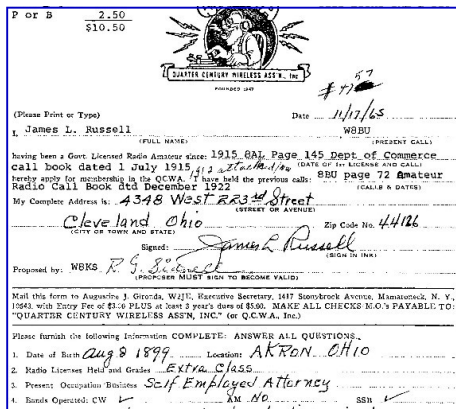 P or B 2.50
$10.50
QUARTER CENTURY WIRELESS ASS'N., Inc
FOUNDED 1947
(Please Print or Type) Date 11/17/65
I, James L. Russell W8BU
(FULL NAME) (PRESENT CALL)
having been a Govt. Licensed Radio Amateur since: 1915 8AI, Page 145 Dept of Commerce
call book dated 1 July 1915, (DATE OF 1st LICENSE AND CALL)
hereby apply for membership in the QCWA. I have held the previous calls: 8BU page 72 Amateur
Radio Call Book dtd December 1922 (CALLS & DATES)
My Complete Address is: 4348 West 223rd Street
(STREET OR AVENUE)
Cleveland Ohio Zip Code No. 44126
(CITY OR TOWN AND STATE)
Signed: James L Russell
(SIGN IN INK)
Proposed by: W8KS R. G.
(PROPOSER MUST SIGN TO BECOME VALID)
Mail this form to Augustine J. Gironda, W2JE, Executive Secretary, 1417 Stonybrook Avenue, Mamaroneck, N. Y.,
10543, with Entry Fee of $3.00 PLUS at least 3 year's dues of $5.00. MAKE ALL CHECKS M.O.'s PAYABLE TO:
"QUARTER CENTURY WIRELESS ASS'N, INC." (or Q.C.W.A., Inc.)
Please furnish the following Information COMPLETE: ANSWER ALL QUESTIONS.
1. Date of Birth Aug 8 1899 Location: AKRON OHIO
2. Radio Licenses Held and Grades Extra Class
3. Present Occupation/Business Self Employed Attorney
4. Bands Operated: CW ✓ AM NO SSB ✓